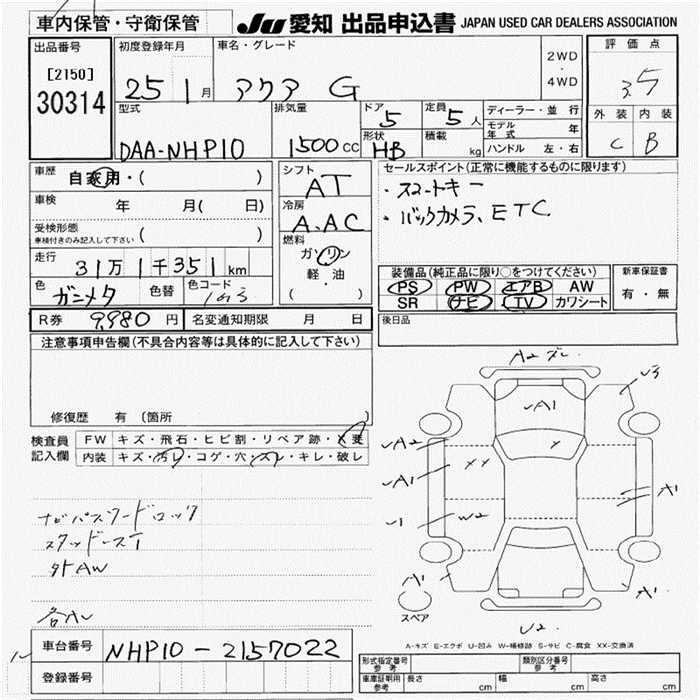 車内保管・守衛保管
JU 愛知 出品申込書 JAPAN USED CAR DEALERS ASSOCIATION
出品番号
[2150]
30314
初度登録年月
25 1 月
車名・グレード
アクア G
2WD
・
4WD
評価点
3.5
外装 内装
C B
型式
DAA-NHP10
排気量
1500 cc
ドア
5
定員
5 人
形状
HB
積載
kg
ディーラー・並行
モデル年式 年
ハンドル 左・右
車歴
自家用・( )
車検 年 月( 日)
受検形態
車検付きのみ記入して下さい ( )
走行
31万1千351 km
色
ガンメタ
色替
色コード
シフト
AT
冷房
A.AC
燃料
ガソリン
軽・油
( )
セールスポイント(正常に機能するものに限ります)
・スマートキー
・バックカメラ、ETC
装備品(純正品に限り○をつけてください)
PS PW エアB AW
SR ナビ TV カワシート
新車保証書
有・無
R券 9,980 円
名変通知期限 月 日
後日品
注意事項申告欄(不具合内容等は具体的に記入して下さい)
修復歴 有 (箇所 )
検査員
記入欄
FW キズ・飛石・ヒビ割・リペア跡・X要
内装 キズ・汚レ・コゲ・穴・スレ・キレ・破レ
ナビパスワードロック
スタッドレスT
外AW
A2
A1
U3
A2
A1
W2
XX
A1
A1
A1
U2
スペア
A-キズ E-エクボ U-凹み W-補修跡 S-サビ C-腐食 XX-交換済
車台番号
NHP10-2157022
登録番号
形式指定番号
参考
類別区分番号
参考
車庫証明用
参考
長さ cm
幅 cm
高さ cm